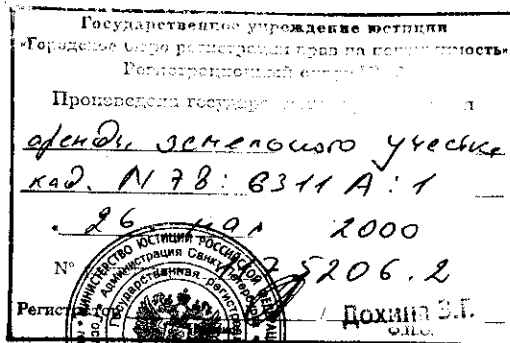 Государственное учреждение юстиции
«Городское бюро регистрации прав на недвижимость»
Регистрационный округ
Произведена государ
аренды земельного участка
кад. N 78: 6311 А: 1
26. мая 2000
№ 5206.2
Регист / Дохина В.Г.
Ф.И.О.
МИНИСТЕРСТВО ЮСТИЦИИ РОССИЙСКОЙ ФЕДЕРАЦ
Администрация Санкт-Петербурга
Государственная регистра